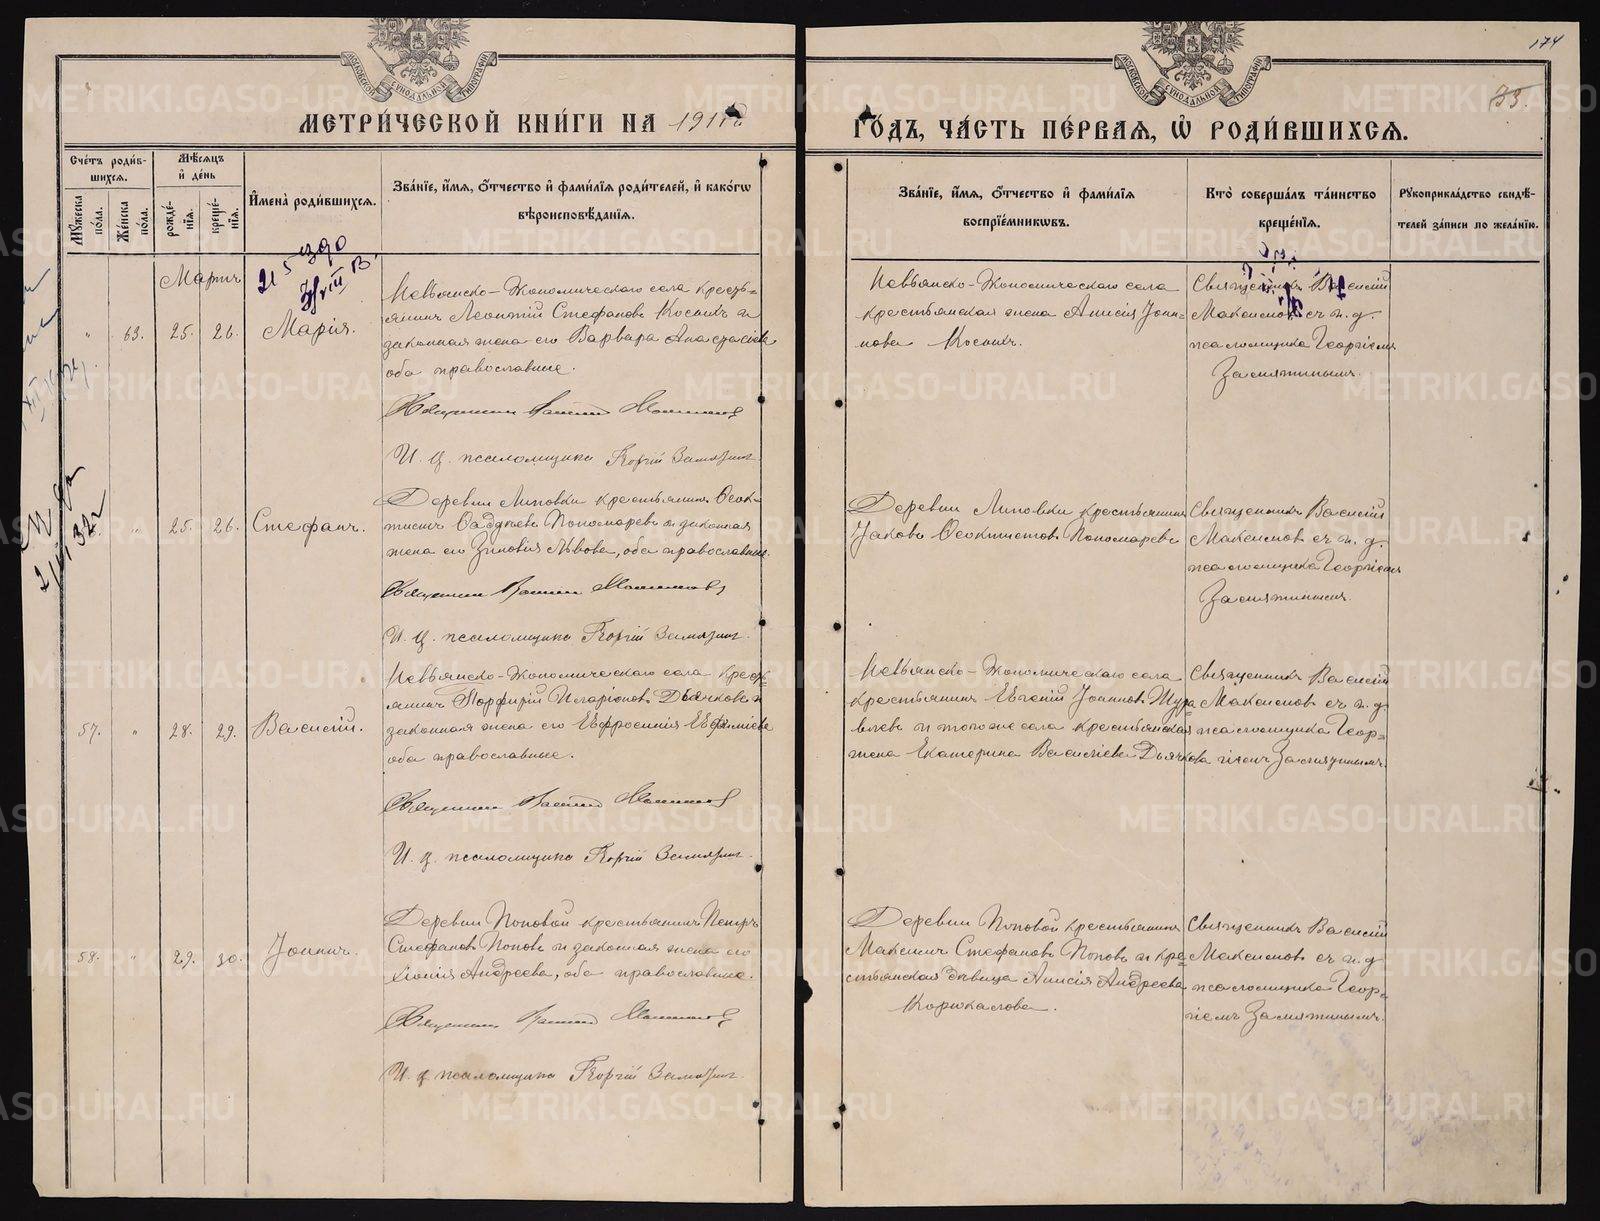 174
33.
МОСКОВСКОЙ СѴНОДАЛЬНОЙ ТИПОГРАФІИ
МОСКОВСКОЙ СѴНОДАЛЬНОЙ ТИПОГРАФІИ
МЕТРИ́ЧЕСКОЙ КНИ́ГИ НА 191
ГО́ДЪ, ЧА́СТЬ ПЕ́РВАЯ, Ѿ РОДИ́ВШИХСѦ.
Сче́тъ роди́в-
шихсѧ.
Мꙋжеска по́ла.
Же́нска по́ла.
Мѣ́сѧцъ и҆ де́нь
рожде́-нїѧ.
креще́-нїѧ.
И҆мена̀ роди́вшихсѧ.
Зва́нїе, и҆́мѧ, ѻ҆́тчество и҆ фами́лїѧ роди́телей, и҆ како́гѡ
вѣроисповѣ́данїѧ.
Зва́нїе, и҆́мѧ, ѻ҆́тчество и҆ фами́лїѧ
воспрїе́мникѡвъ.
Кто̀ соверша́лъ та́инство
креще́нїѧ.
Рꙋкоприкла́дство свидѣ́-
телей за́писи по жела́нїю.
Мартъ
" 63. 25. 26. Марія.
Невьянско-Экономическаго села кресть=
янинъ Леонтій Стефановъ Косыхъ и
законная жена его Варвара Анастасіева
оба православные.
Священникъ Василій Максимовъ
И. д. псаломщика Георгій Замятинъ.
Невьянско-Экономическаго села
крестьянская жена Анисія Іоан-
нова Косыхъ.
Священникъ Василій
Максимовъ съ и. д.
псаломщика Георгіемъ
Замятинымъ.
" 25. 26. Стефанъ.
Деревни Липовки крестьянинъ Ѳеок-
тистъ Ѳаддѣевъ Пономаревъ и законная
жена его Зиновія Львова, оба православные.
Священникъ Василій Максимовъ
И. д. псаломщика Георгій Замятинъ.
Деревни Липовки крестьянинъ
Іаковъ Ѳеоктистовъ Пономаревъ
Священникъ Василій
Максимовъ съ и. д.
псаломщика Георгіемъ
Замятинымъ.
57. " 28. 29. Василій.
Невьянско-Экономическаго села кресть-
янинъ Порфирій Иларіоновъ Дьячковъ и
законная жена его Евфросинія Евфиміева
оба православные.
Священникъ Василій Максимовъ
И. д. псаломщика Георгій Замятинъ.
Невьянско-Экономическаго села
крестьянинъ Евгеній Іоанновъ Жура
влевъ и того же села крестьянская
жена Екатерина Василіева Дьячкова
Священникъ Василій
Максимовъ съ и. д.
псаломщика Геор=
гіемъ Замятинымъ.
58. " 29. 30. Іоаннъ.
Деревни Поповой крестьянинъ Петръ
Стефановъ Поповъ и законная жена его
Хіонія Андреева, оба православные.
Священникъ Василій Максимовъ
И. д. псаломщика Георгій Замятинъ.
Деревни Поповой крестьянинъ
Максимъ Стефановъ Поповъ и кре=
стьянская дѣвица Анисія Андреева
Корюкалова.
Священникъ Василій
Максимовъ съ и. д.
псаломщика Геор-
гіемъ Замятинымъ.
METRIKI.GASO-URAL.RU